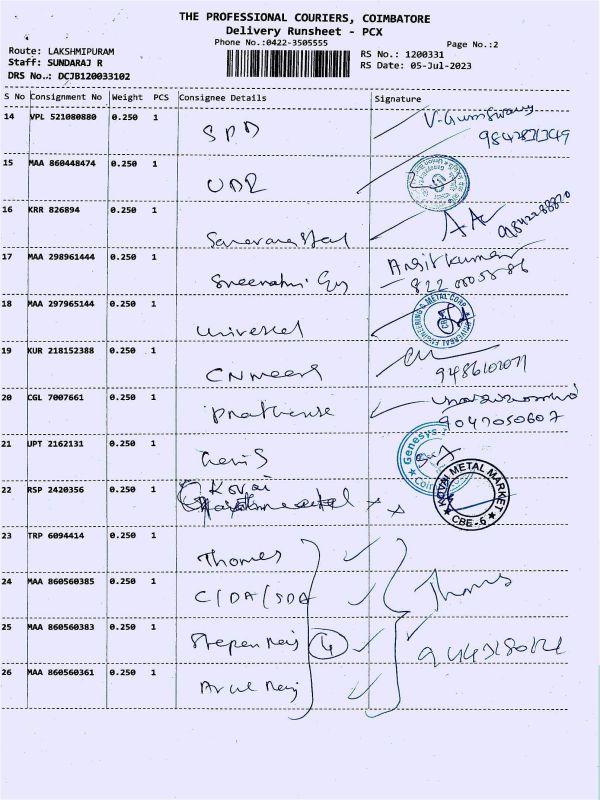 THE PROFESSIONAL COURIERS, COIMBATORE
Delivery Runsheet - PCX
Phone No.:0422-3505555
Page No.:2
Route: LAKSHMIPURAM
Staff: SUNDARAJ R
DRS No.: DCJB120033102
RS No.: 1200331
RS Date: 05-Jul-2023
S No Consignment No Weight PCS Consignee Details Signature
14 VPL 521080880 0.250 1
15 MAA 860448474 0.250 1
16 KRR 826894 0.250 1
17 MAA 298961444 0.250 1
Ansit kumar
18 MAA 297965144 0.250 1 Universal
UNIVERSAL ENGINEERING & METAL CORP
CBE
19 KUR 218152388 0.250 1
20 CGL 7007661 0.250 1
9047050607
21 UPT 2162131 0.250 1
Genesys
22 RSP 2420356 0.250 1 Kovai
KOVAI METAL MARKET
CBE-6
23 TRP 6094414 0.250 1 Thomas
24 MAA 860560385 0.250 1 C/DA/SDA
Thomas
25 MAA 860560383 0.250 1 Stepen Raj 4
26 MAA 860560361 0.250 1 Arul Raj